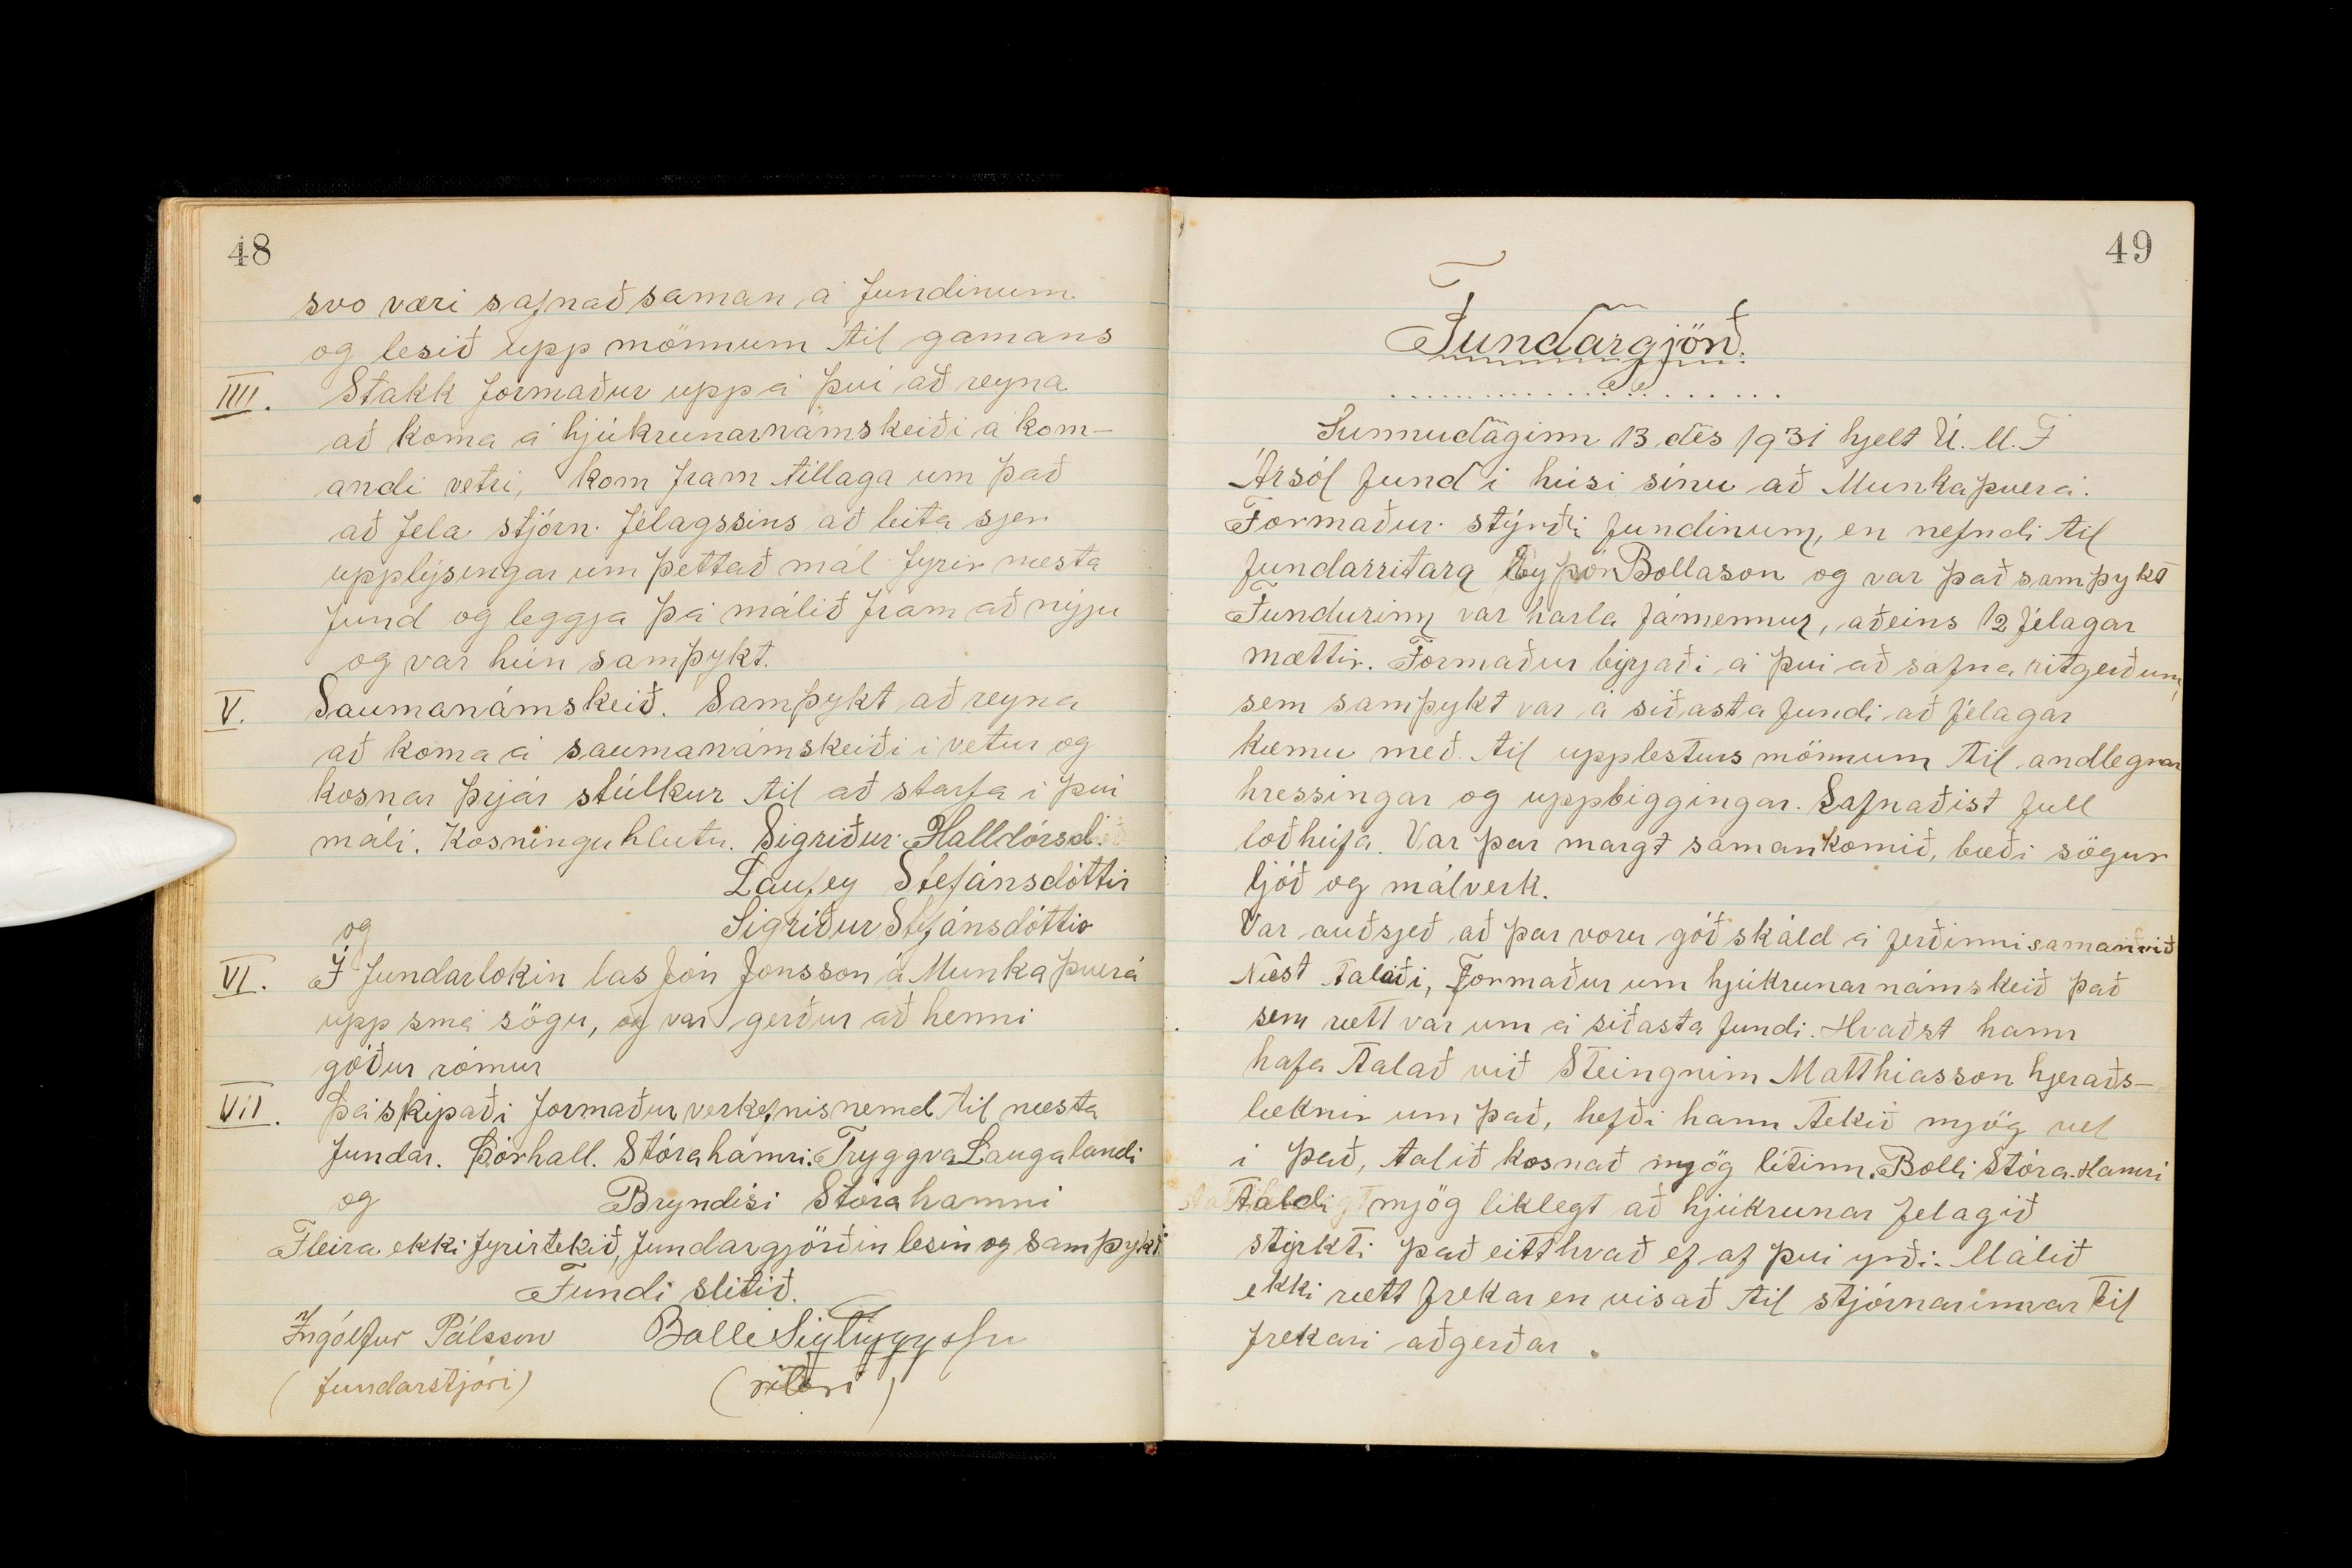 48
svo væri safnað saman á fundinum
og lesið upp mönnum til gamans
IIII. Stakk formaður uppá því að reyna
að koma á hjúkrunarnámskeiði á kom-
andi vetri, kom fram tillaga um það
að fela stjórn félagssins að leita sjer
upplýsingar um þettað mál fyrir næsta
fund og leggja þá málið fram að nýju
og var hún samþykt.
V. Saumanámskeið. Samþykt að reyna
að koma á saumanámskeiði í vetur og
kosnar þrjár stúlkur til að starfa í því
máli. Kosninguhlutu. Sigríður Halldórsd.
Laufey Stefánsdóttir
og Sigríður Stefánsdóttir
VI. Í fundarlokin las Jón Jónsson á Munkaþverá
upp smá sögu, og var gerður að henni
góður rómur
VII. Þá skipaði formaður verkefnisnemd til næsta
fundar. Þórhall. Stórahamri. Tryggva Laugalandi
og Bryndísi Stórahamri
Fleira ekki fyrirtekið, fundargjörðin lesin og samþykt
Fundi slitið.
Ingólfur Pálsson Bolli Sigtryggsson
(fundarstjóri) (ritari)
49
Fundargjörð.
Sunnudaginn 13 des 1931 hjelt U. M. F
Ársól fund í húsi sínu að Munkaþverá.
Formaður stýrði fundinum, en nefndi til
fundarritara Eyþór Bollason og var það samþykt
Fundurinn var harla fámennur, aðeins 12 félagar
mættir. Formaður byrjaði á því að safna ritgerðum,
sem samþykt var á síðasta fundi að félagar
kæmu með til upplesturs mönnum til andlegrar
hressingar og uppbiggingar. Safnaðist full
loðhúfa. Var þar margt samankomið, bæði sögur
ljóð og málverk.
Var auðsjeð að þar voru góð skáld á ferðinni samanvið
Næst talaði, Formaður um hjúkrunarnámskeið það
sem rætt var um á síðasta fundi. Hvaðst hann
hafa talað við Steingrim Matthiasson hjeraðs-
læknir um það, hefði hann tekið mjög vel
í það, talið kosnað mjög lítinn. Bolli Stóra-Hamri
Taldi mjög líklegt að hjúkrunar felagið
styrkti það eitthvað ef af því yrði. Málið
ekki rætt frekar en vísað til stjórnarinnar til
frekari aðgerðar.